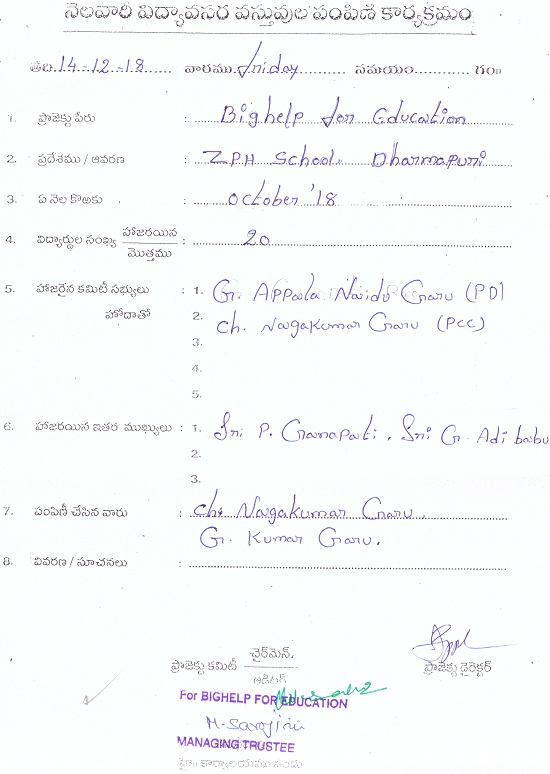 నెలవారీ విద్యావసర వస్తువుల పంపిణీ కార్యక్రమం
తేది 14-12-18 వారము Friday సమయం............ గం॥
1. ప్రాజెక్టు పేరు : Bighelp for Education
2. ప్రదేశము / ఆవరణ : ZPH School. Dharmapuri
3. ఏ నెల కొఱకు : October '18
4. విద్యార్థుల సంఖ్య హాజరయిన / మొత్తము : 20
5. హాజరైన కమిటీ సభ్యులు : 1. G. Appala Naidu Garu (PD)
హోదాతో 2. Ch. Nagakumar Garu (PCC)
3.
4.
5.
6. హాజరయిన ఇతర ముఖ్యులు : 1. Sri P. Ganapati, Sri G. Adi babu
2.
3.
7. పంపిణీ చేసిన వారు : Ch. Nagakumar Garu.
G. Kumar Garu.
8. వివరణ / సూచనలు :
ప్రాజెక్టు కమిటీ చైర్‌మెన్. / ఆడిటర్
ప్రాజెక్టు డైరెక్టర్
For BIGHELP FOR EDUCATION
M. Sarojini
MANAGING TRUSTEE